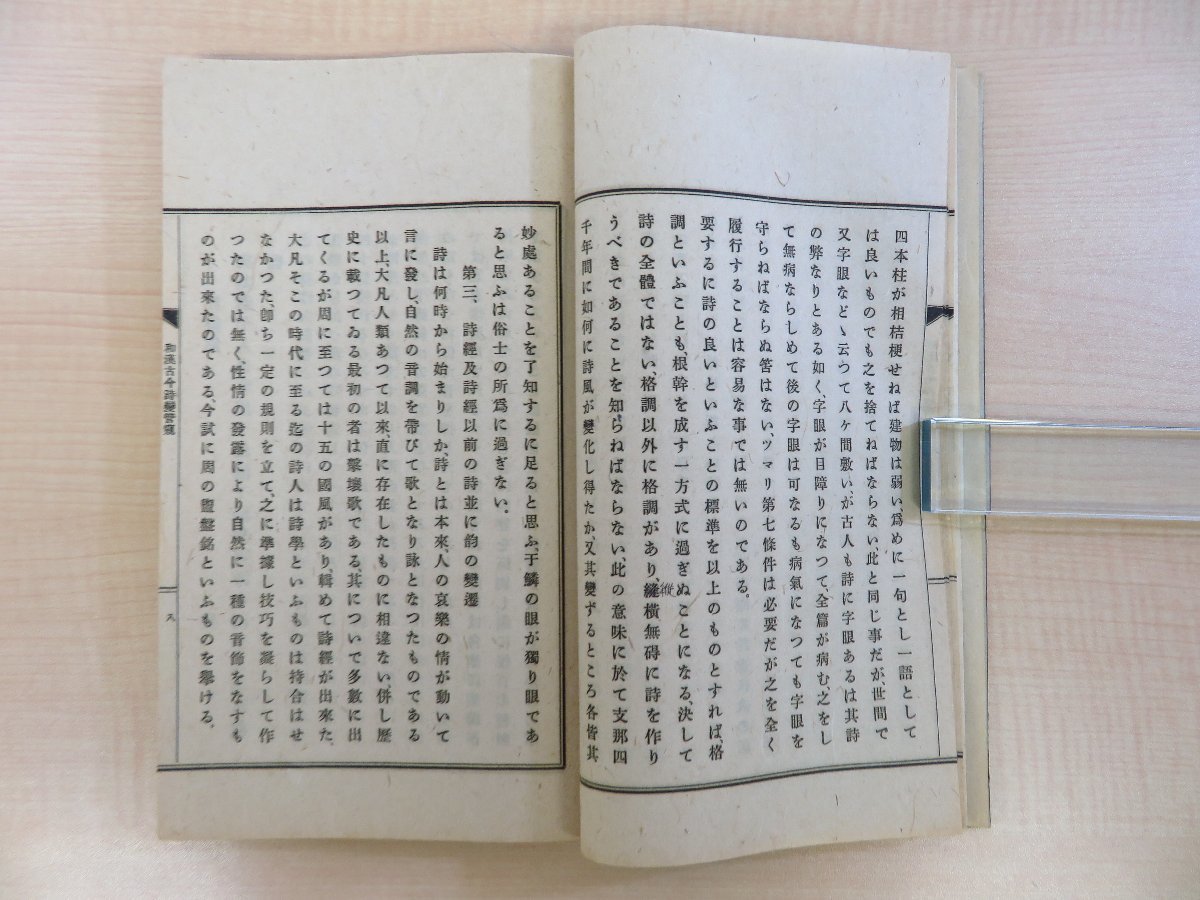 四本柱が相桔梗せねば建物は弱い、爲めに一句とし一語として
は良いものでも之を捨てねばならない、此と同じ事だが、世間で
又字眼などゝ云つて八ケ間敷いが古人も詩に字眼あるは其詩
の弊なりとある如く、字眼が目障りになつて、全篇が病む、之をし
て無病ならしめて後の字眼は可なるも病氣になつても字眼を
守らねばならぬ筈はない、ツマリ第七條件は必要だが之を全く
履行することは容易な事では無いのである。
要するに詩の良いといふことの標準を以上のものとすれば、格
調といふことも根幹を成す一方式に過ぎぬことになる、決して
詩の全體ではない、格調以外に格調があり、縫橫無碍に詩を作り
縱
うべきであることを知らねばならない、此の意味に於て支那四
千年間に如何に詩風が變化し得たか、又其變ずるところ各皆其
妙處あることを了知するに足ると思ふ、于鱗の眼が獨り眼であ
ると思ふは俗士の所爲に過ぎない。
第三、詩經及詩經以前の詩並に韵の變遷
詩は何時から始まりしか、詩とは本來、人の哀樂の情が動いて
言に發し、自然の音調を帶びて歌となり詠となつたものである
以上、大凡人類あつて以來、直に存在したものに相違ない併し歷
史に載つてゐる最初の者は擊壤歌である、其について多數に出
てくるが周に至つては十五の國風があり、輯めて詩經が出來た、
大凡そこの時代に至る迄の詩人は詩學といふものは持合はせ
なかつた、卽ち一定の規則を立て、之に準據し技巧を凝らして作
つたのでは無く、性情の發露により自然に一種の音節をなすも
のが出來たのである、今試に周の盥盤銘といふものを擧ける。
和漢古今詩變管窺
九